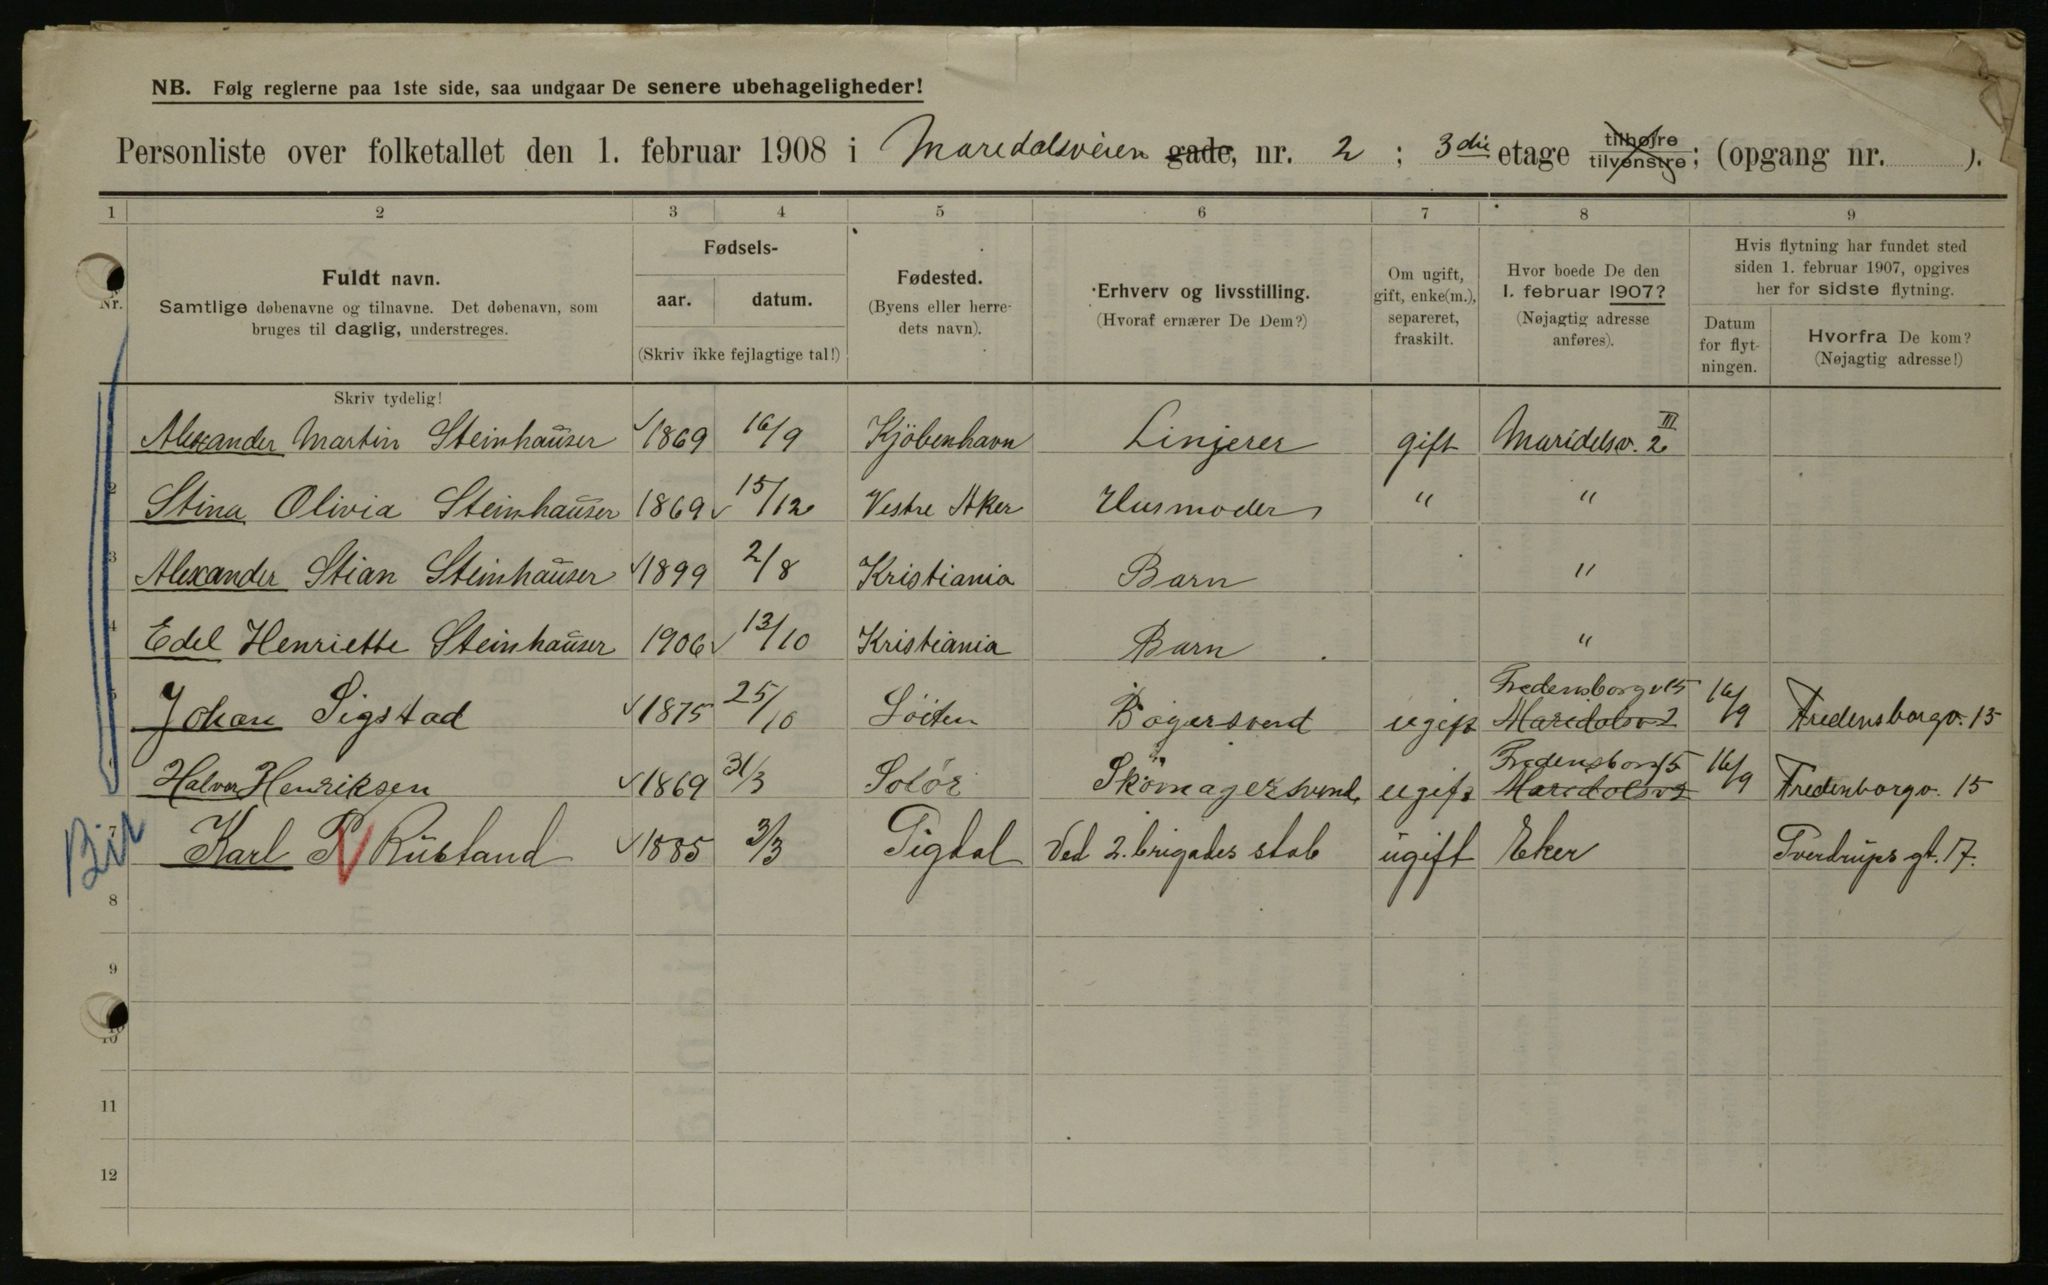 NB. Følg reglerne paa 1ste side, saa undgaar De senere ubehageligheder!
Personliste over folketallet den 1. februar 1908 i Maredalsveien gade, nr. 2 ; 3die etage tilhøjre tilvenstre ; (opgang nr. ).
1 2 3 4 5 6 7 8 9
Nr.
Fuldt navn.
Samtlige døbenavne og tilnavne. Det døbenavn, som
bruges til daglig, understreges.
Skriv tydelig!
Fødsels-
aar. datum.
(Skriv ikke fejlagtige tal!)
Fødested.
(Byens eller herre-
dets navn).
Erhverv og livsstilling.
(Hvoraf ernærer De Dem?)
Om ugift,
gift, enke(m.),
separeret,
fraskilt.
Hvor boede De den
1. februar 1907?
(Nøjagtig adresse
anføres).
Hvis flytning har fundet sted
siden 1. februar 1907, opgives
her for sidste flytning.
Datum
for flyt-
ningen.
Hvorfra De kom?
(Nøjagtig adresse!)
Alexander Martin Steinhauser 1869 16/9 Kjöbenhavn Linjerer gift Maridelsv. 2 III
2 Stina Olivia Steinhauser 1869 15/12 Vestre Aker Husmoder " "
3 Alexander Stian Steinhauser 1899 2/8 Kristiania Barn "
4 Edel Henriette Steinhauser 1906 13/10 Kristiania Barn "
5 Johan Sigstad 1875 25/10 Löiten Bagersvend ugift Fredensborgv 15 Maridalsv 2 16/9 Fredensborgv. 15
6 Halvor Henriksen 1869 31/3 Solör Skomagersvend ugift Fredensborg 15 Maridalsv 2 16/9 Fredenborgv. 15
7 Karl P. Rustand 1885 3/3 Sigdal Ved 2. brigades stab ugift Eker Sverdrups gt. 17.
8
9
10
11
12